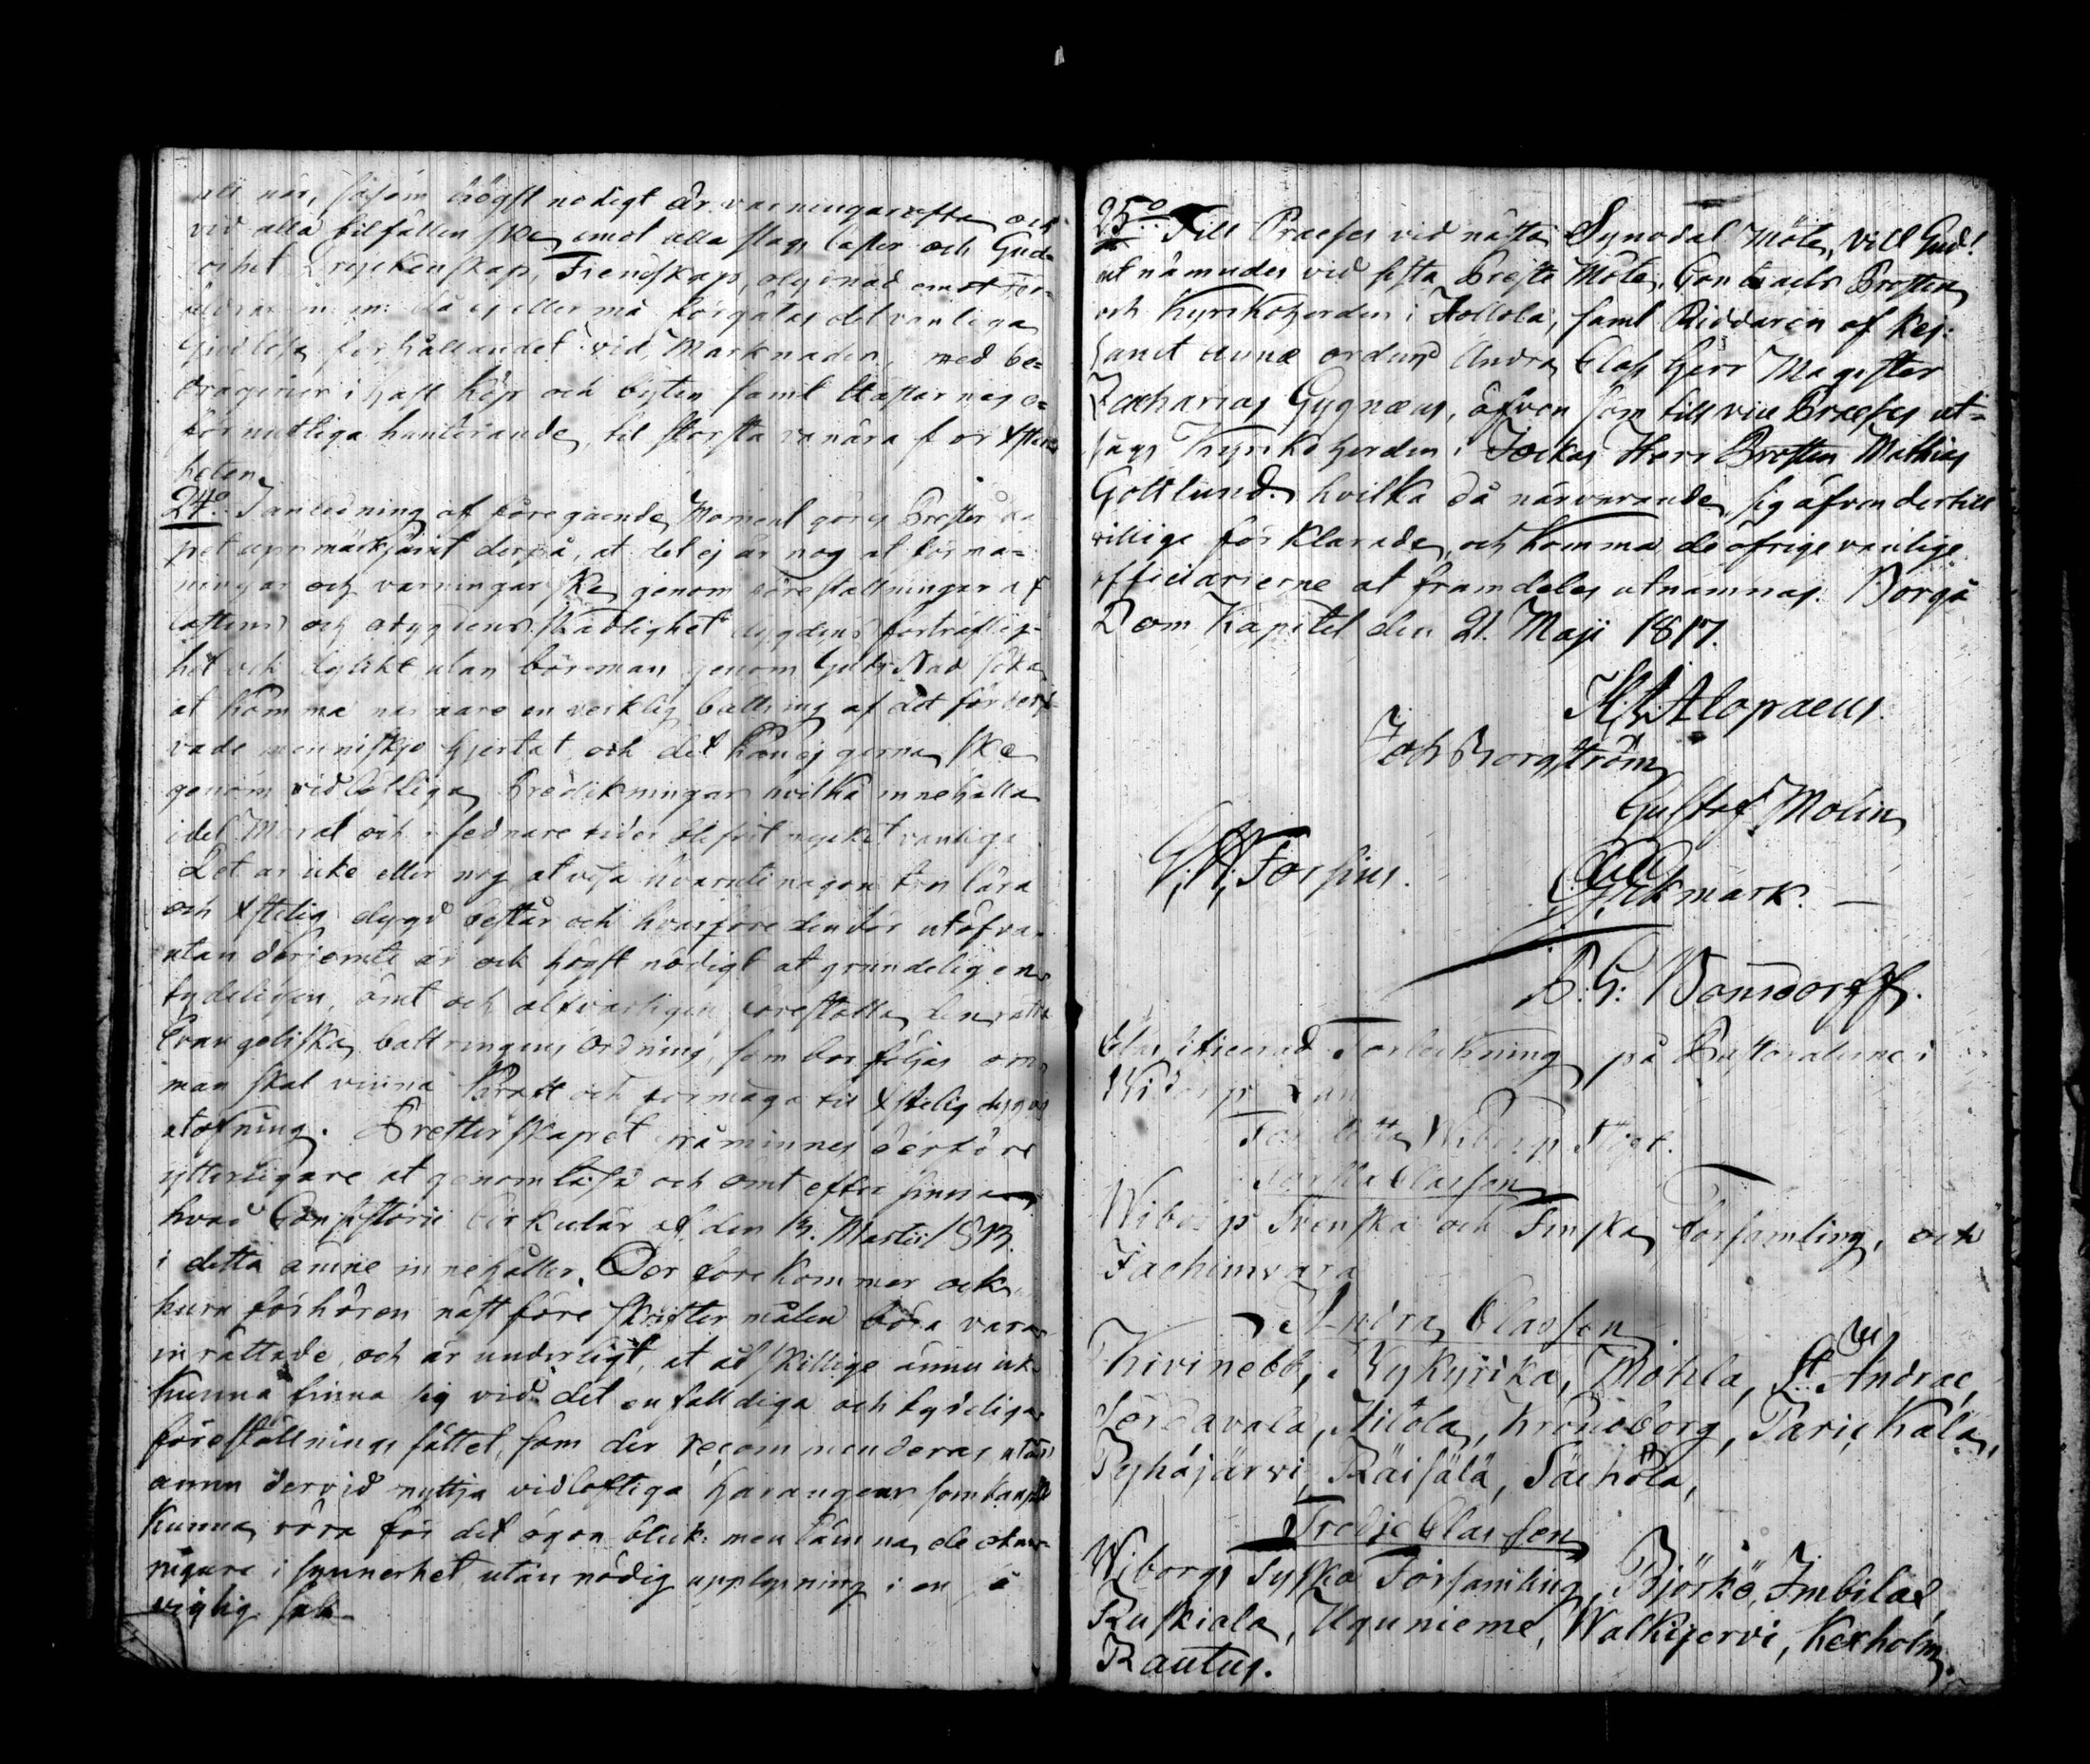 når, såsom högst nödigt är varningar ofta och
vid alla tilfällen ske, emot alla slags laster och Gud-
löshet Dryckenskap, Fiendskap, olydnad emot För-
äldrar m: m: Då ej eller må förgätas det vanliga
Gudlösa förhållandet vid Marknader, med be-
drägerier i häst köp och byten samt hästarnas o-
förnuftliga hanterande, til största vanära för Xsten-
heten.
24:o I anledning af föregående Moment göres Presterska-
pet uppmärksamt derpå, at det ej är nog at förma-
ningar och varningar ske genom föreställningar af
lastens och odygdens skadlighet dygdens förträflig-
het och dylikt utan bör man genom Guds Nåd söka
at komma närmare en verklig bättring af det förderf-
vade menniskjo hjertat, och det kan ej gerna ske
genom vidlöftiga Predikningar hvilka innehålla
idel Moral och i sednare tider blifvit mycket vanlige
Det är icke eller nog at visa hvaruti någon tros lära
och Xstelig dygd består och hvarföre den bör utöfvas
utan derjemte är ock högst nödigt at grundeligen
tydeligen, ömt och alfvarligen föreställa den rätta
Evangeliska bättringens Ordning, som bör följas om
man skal vinna Kraft och förmåga til Xstelig dygds
utöfning. Presterskapet påminnes derföre
ytterligare at genomläsa och ömt eftersinna
hvad Consistorii Cirkulär af den 13. Martii 1813.
i detta ämne innehåller. Der förekommer ock
huru förhören näst före skriftermålen böra vara
inrättade, och är underligt, at åtskillige ännu icke
kunna finna sig vid det enfalldiga och tydeliga
föreställnings sättet, som der recommenderas utan
ännu dervid nyttja vidlöftiga haranguer som kanske
kunna röra för det ögonblick: men lämna de okun-
nigare i synnerhet utan nödig upplysning i en så
vigtig sak
25:o Till Praeses vid nästa Synodal Möte, vill Gud!
utnämndes vid sista Preste Möte, Contracts Prosten
och Kyrkoherden i Hollola, samt Riddaren af Kej:
Sanct Annæ ordens Andra Class Herr Magister
Zacharias Cygnæus, äfven som till vice Praeses ut-
sågs Kyrkoherden i Jockas Herr Prosten Mathias
Gottlund. hvilka då närvarande, sig äfven dertill
villige förklarade, och komma de öfrige vanlige
officiarierne at framdeles utnämnas. Borgå
Dom Kapitel den 21. Maji 1817.
M: Alopaeus.
Joh Borgström
Gustaf Molin
G. A. Forsius.
G. Ekmark.
P: G: Bonsdorff.
Classificerad Förteckning på Pastoraterne i
Wiborgs Län
Första Classen
Wiborgs Svenska och Finska Församling, och
Jachimvara
Andra Classen
Kivinebb, Nykyrka, Mohla, S:t Andrae,
Serdavala, Hitola, Kronoborg, Parickala,
Pyhäjärvi, Räisälä, Säckjöla,
Tredje Classen
Wiborgs Tyska Församling, Björkö, Imbilax,
Ruskiala, Ugunieme, Walkijervi, Kexholm,
Rautus.